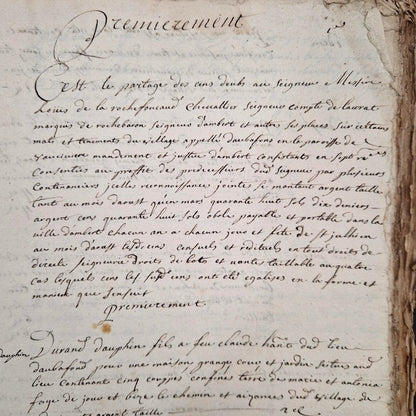 Premierement
Cest le partage des cens deubs au seigneur Messire
Louis de la rochefoucaud chevallier seigneur compte de laurat
marquis de rochebaron seigneur dambert et autres ses places sur certains
mas et tenements du village appellé daubafons en la paroisse de
mandement et justice dambert consistants en sept
Consenties au proffit des predecesseurs dud seigneur par plusieurs
Contenanciers icelles reconnoissances jointes se montant argent taille
tant au mois daoust quen mars quarante huit sols dix deniers
argent cens quarante huit sols obole payable et portable dans la
ville dambert chacun an a chacun jour et fete de st jullien
au mois daoust cens censuels et directe en tous droits de
directe seigneurie droits de lots et vantes taillable au quatre
cas lesquels cens les susd cens ont eté egalises en la forme et
maniere que sensuit
Premierement.
dauphin
Durand dauphin fils a feu claude hant du lieu
daubafond pour une maison grange cour et jardin scitues aud
lieu Contenant cinq couppes confines terre de marie et antonia
fage de jour et bize le chemin et aizances dud village de
argent taille